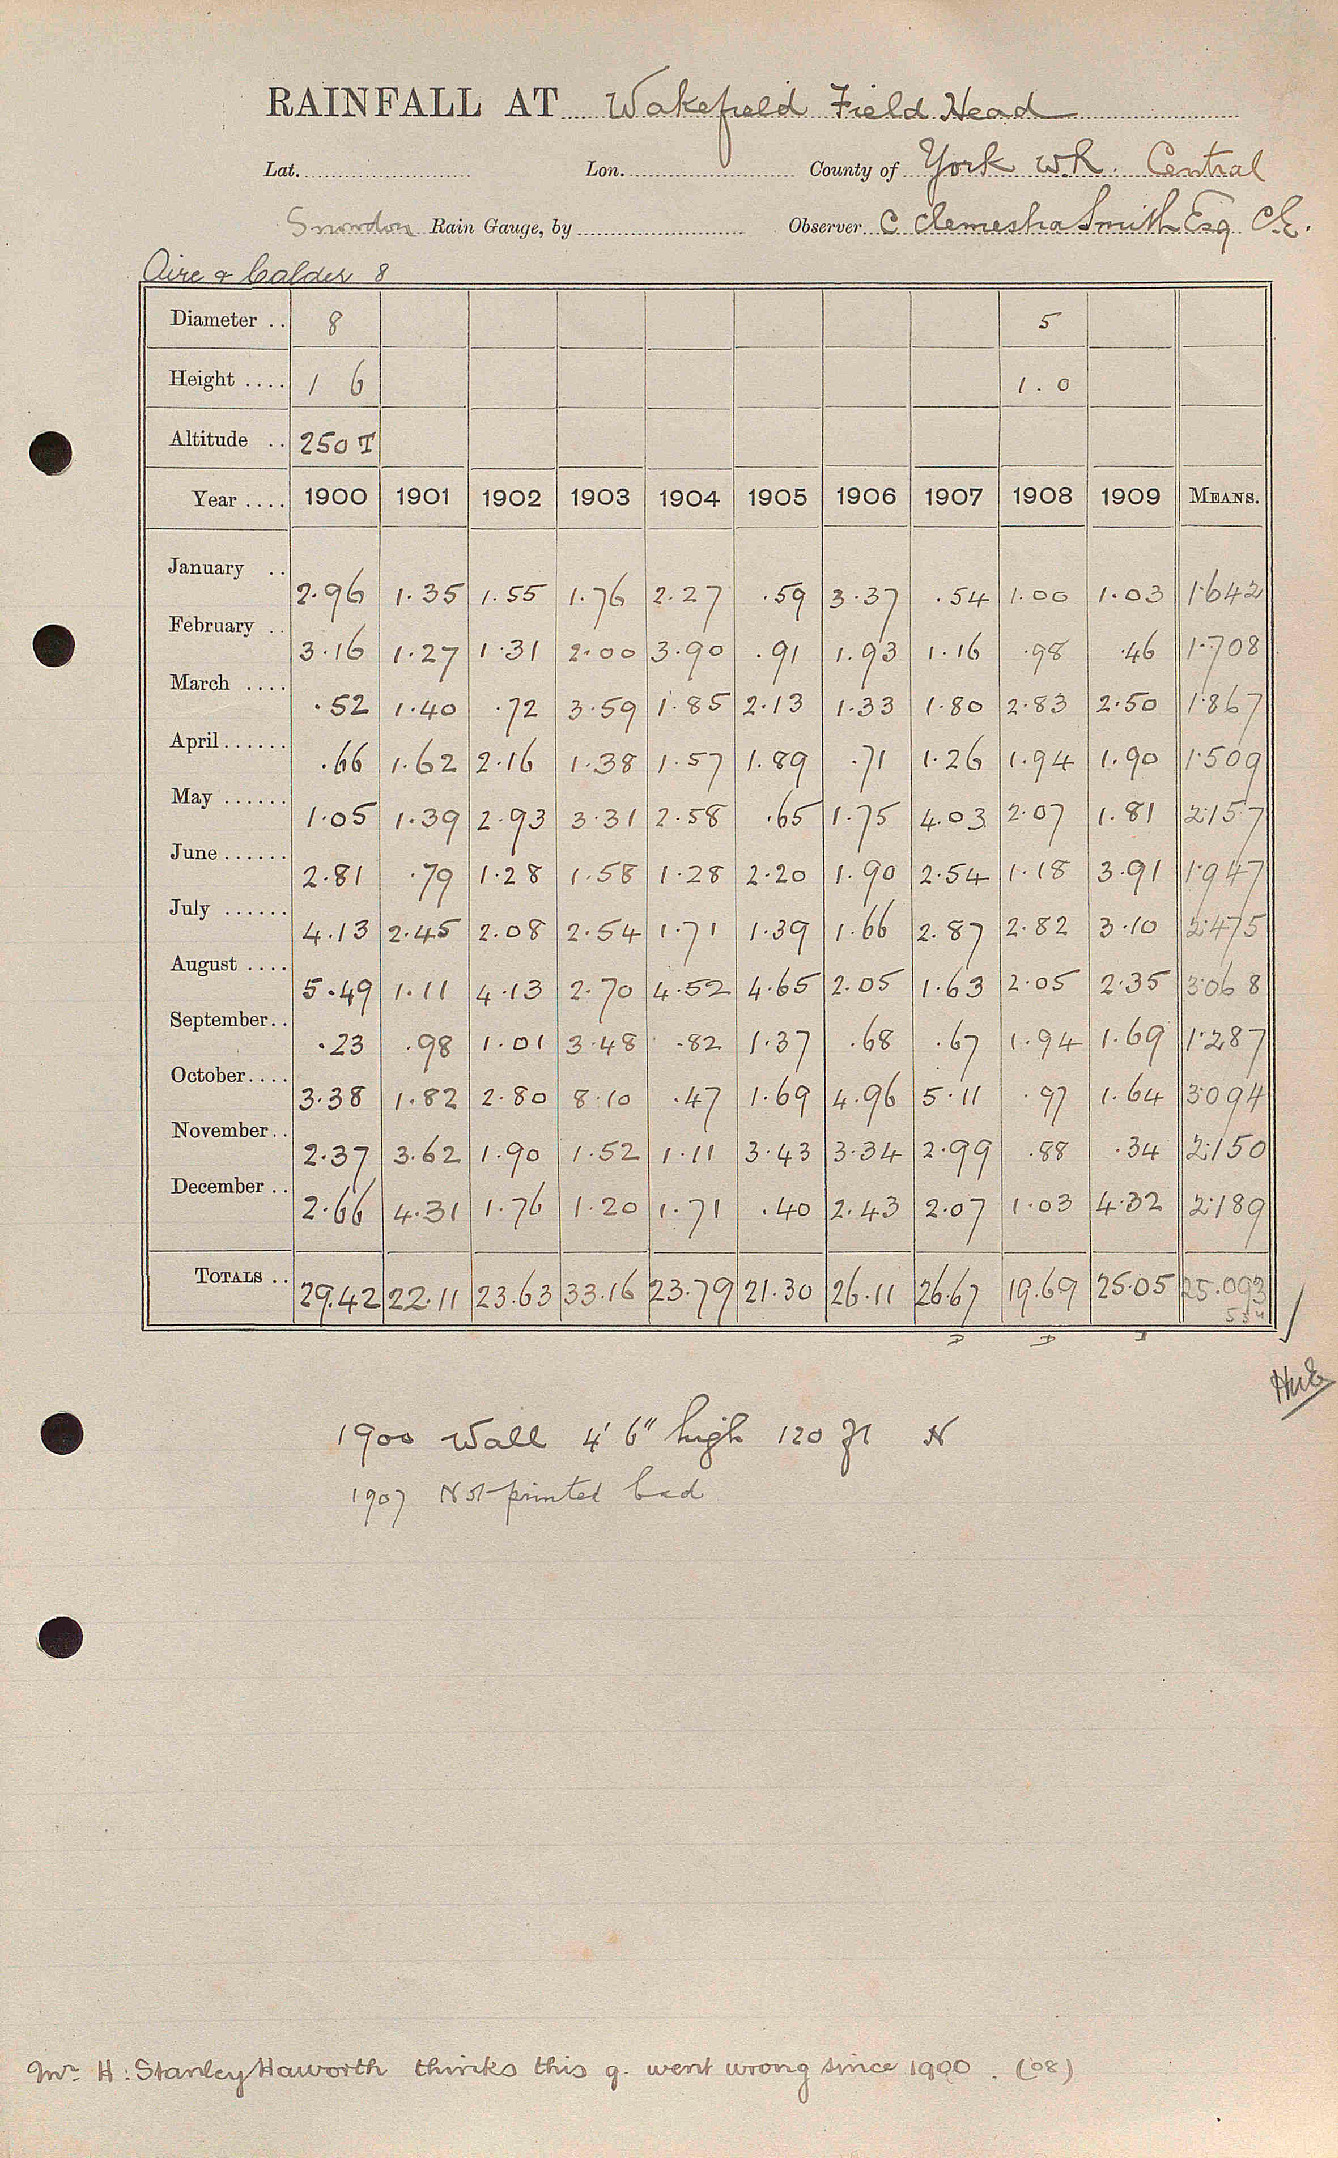 RAINFALL AT Wakefield Field Head
Lat. Lon. County of York W.R. Central
Snowdon Rain Gauge, by Observer C Clemesha Smith Esq C.E.
Aire & Calder 8
Diameter .. 8 5
Height .... 1 6 1.0
Altitude .. 250 T
Year .... 1900 1901 1902 1903 1904 1905 1906 1907 1908 1909 MEANS.
January .. 2.96 1.35 1.55 1.76 2.27 .59 3.37 .54 1.00 1.03 1.642
February .. 3.16 1.27 1.31 2.00 3.90 .91 1.93 1.16 .98 .46 1.708
March .... .52 1.40 .72 3.59 1.85 2.13 1.33 1.80 2.83 2.50 1.867
April ...... .66 1.62 2.16 1.38 1.57 1.89 .71 1.26 1.94 1.90 1.509
May ...... 1.05 1.39 2.93 3.31 2.58 .65 1.75 4.03 2.07 1.81 2.157
June ...... 2.81 .79 1.28 1.58 1.28 2.20 1.90 2.54 1.18 3.91 1.947
July ...... 4.13 2.45 2.08 2.54 1.71 1.39 1.66 2.87 2.82 3.10 2.475
August .... 5.49 1.11 4.13 2.70 4.52 4.65 2.05 1.63 2.05 2.35 3.068
September.. .23 .98 1.01 3.48 .82 1.37 .68 .67 1.94 1.69 1.287
October.... 3.38 1.82 2.80 8.10 .47 1.69 4.96 5.11 .97 1.64 3.094
November.. 2.37 3.62 1.90 1.52 1.11 3.43 3.34 2.99 .88 .34 2.150
December .. 2.66 4.31 1.76 1.20 1.71 .40 2.43 2.07 1.03 4.32 2.189
TOTALS .. 29.42 22.11 23.63 33.16 23.79 21.30 26.11 26.67 19.69 25.05 25.093
1900 Wall 4' 6" high 120 ft N
1907 Not printed bad
Mr. H. Stanley Haworth thinks this g. went wrong since 1900. ('08)